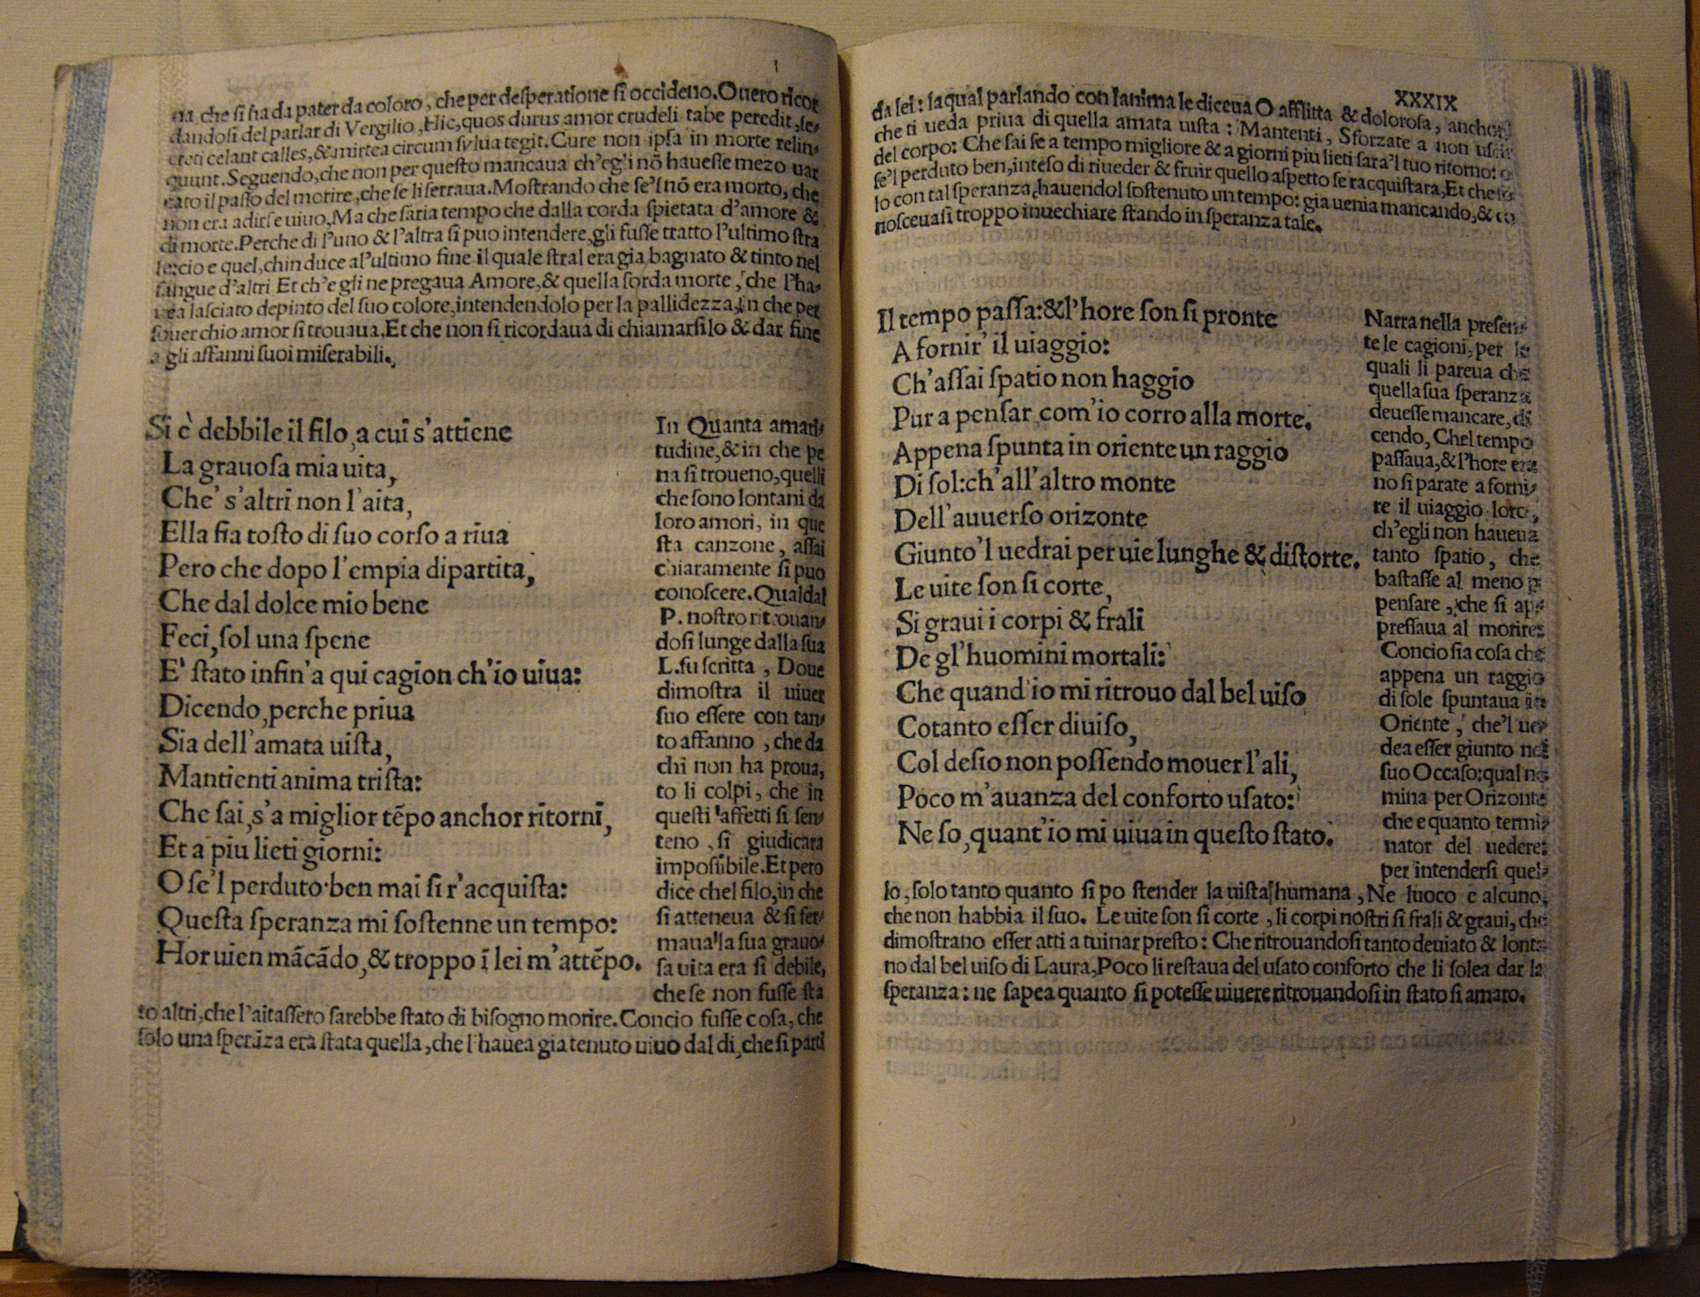 na che si ha da pater da coloro, che per desperatione si occideno. Ouero ricor
dandosi del parlar di Vergilio, Hic, quos durus amor crudeli tabe peredit, se,
creti celant calles, & mirtea circum sylua tegit. Cure non ipsa in morte relin,
quunt. Seguendo, che non per questo mancaua ch'egli nō hauesse mezo uar
cato il passo del morire, che se li serraua. Mostrando che se'l nō era morto, che
non era adirse uiuo, Ma che saria tempo che dalla corda spietata d'amore &
di morte. Perche di l'uno & l'altra si puo intendere, gli fusse tratto l'ultimo stra
le: cio e quel, chin duce al'ultimo fine il quale stral era gia bagnato & tinto nel
sangue d'altri Et ch'e gli ne pregaua Amore, & quella sorda morte, che l'ha,
uea lasciato depinto del suo colore, intendendolo per la pallidezza, in che per
souerchio amor si trouaua. Et che non si ricordaua di chiamarsilo & dar fine
a gli affanni suoi miserabili.
Si è debbile il filo, a cui s'attiene
La grauosa mia uita,
Che' s'altri non l'aita,
Ella fia tosto di suo corso a riua
Pero che dopo l'empia dipartita,
Che dal dolce mio bene
Feci, sol una spene
E' stato infin'a qui cagion ch'io uiua:
Dicendo, perche priua
Sia dell'amata uista,
Mantienti anima trista:
Che sai, s'a miglior tēpo anchor ritorni,
Et a piu lieti giorni:
O se'l perduto ben mai si r'acquista:
Questa speranza mi sostenne un tempo:
Hor uien mācādo, & troppo ī lei m'attēpo.
In Quanta amari,
tudine, & in che pe
na si troueno, quelli
che sono lontani da
loro amori, in que
sta canzone, assai
chiaramente si puo
conoscere. Qual dal
P. nostro ritrouan,
dosi lunge dalla sua
L. fu scritta, Doue
dimostra il uiuer
suo essere con tan,
to affanno, che da
chi non ha proua,
to li colpi, che in
questi affetti si sen,
teno, si giudicara
impossibile. Et pero
dice chel filo, in che
si atteneua & si fer,
maua la sua grauo,
sa uita era si debile,
che se non fusse sta
to altri, che l'aitassero sarebbe stato di bisogno morire. Concio fusse cosa, che
solo una sperāza era stata quella, che l'hauea gia tenuto uiuo dal di, che si parti
XXXIX
da lei: laqual parlando con lanima le diceua O afflitta & dolorosa, anchor
che ti ueda priua di quella amata uista: Mantenti, Sforzate a non uscir
del corpo: Che sai se a tempo migliore & a giorni piu lieti sara'l tuo ritorno: o
se'l perduto ben, inteso di riueder & fruir quello aspetto se racquistara, Et che
lo con tal speranza, hauendol sostenuto un tempo: gia uenia mancando, & co
nosceuasi troppo inuechiare stando in speranza tale.
Il tempo passa: & l'hore son si pronte
A fornir' il uiaggio:
Ch'assai spatio non haggio
Pur a pensar com'io corro alla morte.
Appena spunta in oriente un raggio
Di sol: ch'all'altro monte
Dell'auuerso orizonte
Giunto'l uedrai per uie lunghe & distorte.
Le uite son si corte,
Si graui i corpi & frali
De gl'huomini mortali:
Che quand'io mi ritrouo dal bel uiso
Cotanto esser diuiso,
Col desio non possendo mouer l'ali,
Poco m'auanza del conforto usato:
Ne so, quant'io mi uiua in questo stato.
Narra nella presen,
te le cagioni, per le
quali li pareua che
quella sua speranza
deuesse mancare, di
cendo, Chel tempo
passaua, & l'hore era
no si parate a forni,
re il uiaggio loro,
ch'egli non haueua
tanto spatio, che
bastasse al meno p
pensare, che si ap,
pressaua al morire:
Concio sia cosa che
appena un raggio
di sole spuntaua in
Oriente, che'l ue,
dea esser giunto nel
suo Occaso: qual no
mina per Orizonte
che e quanto termi,
nator del uedere:
per intendersi quel,
lo, solo tanto quanto si po stender la uista humana, Ne luoco e alcuno,
che non habbia il suo. Le uite son si corte, li corpi nostri si frali & graui, che
dimostrano esser atti a ruinar presto: Che ritrouandosi tanto deuiato & lonta
no dal bel uiso di Laura, Poco li restaua del usato conforto che li solea dar la
speranza: ne sapea quanto si potesse uiuere ritrouandosi in stato si amaro.